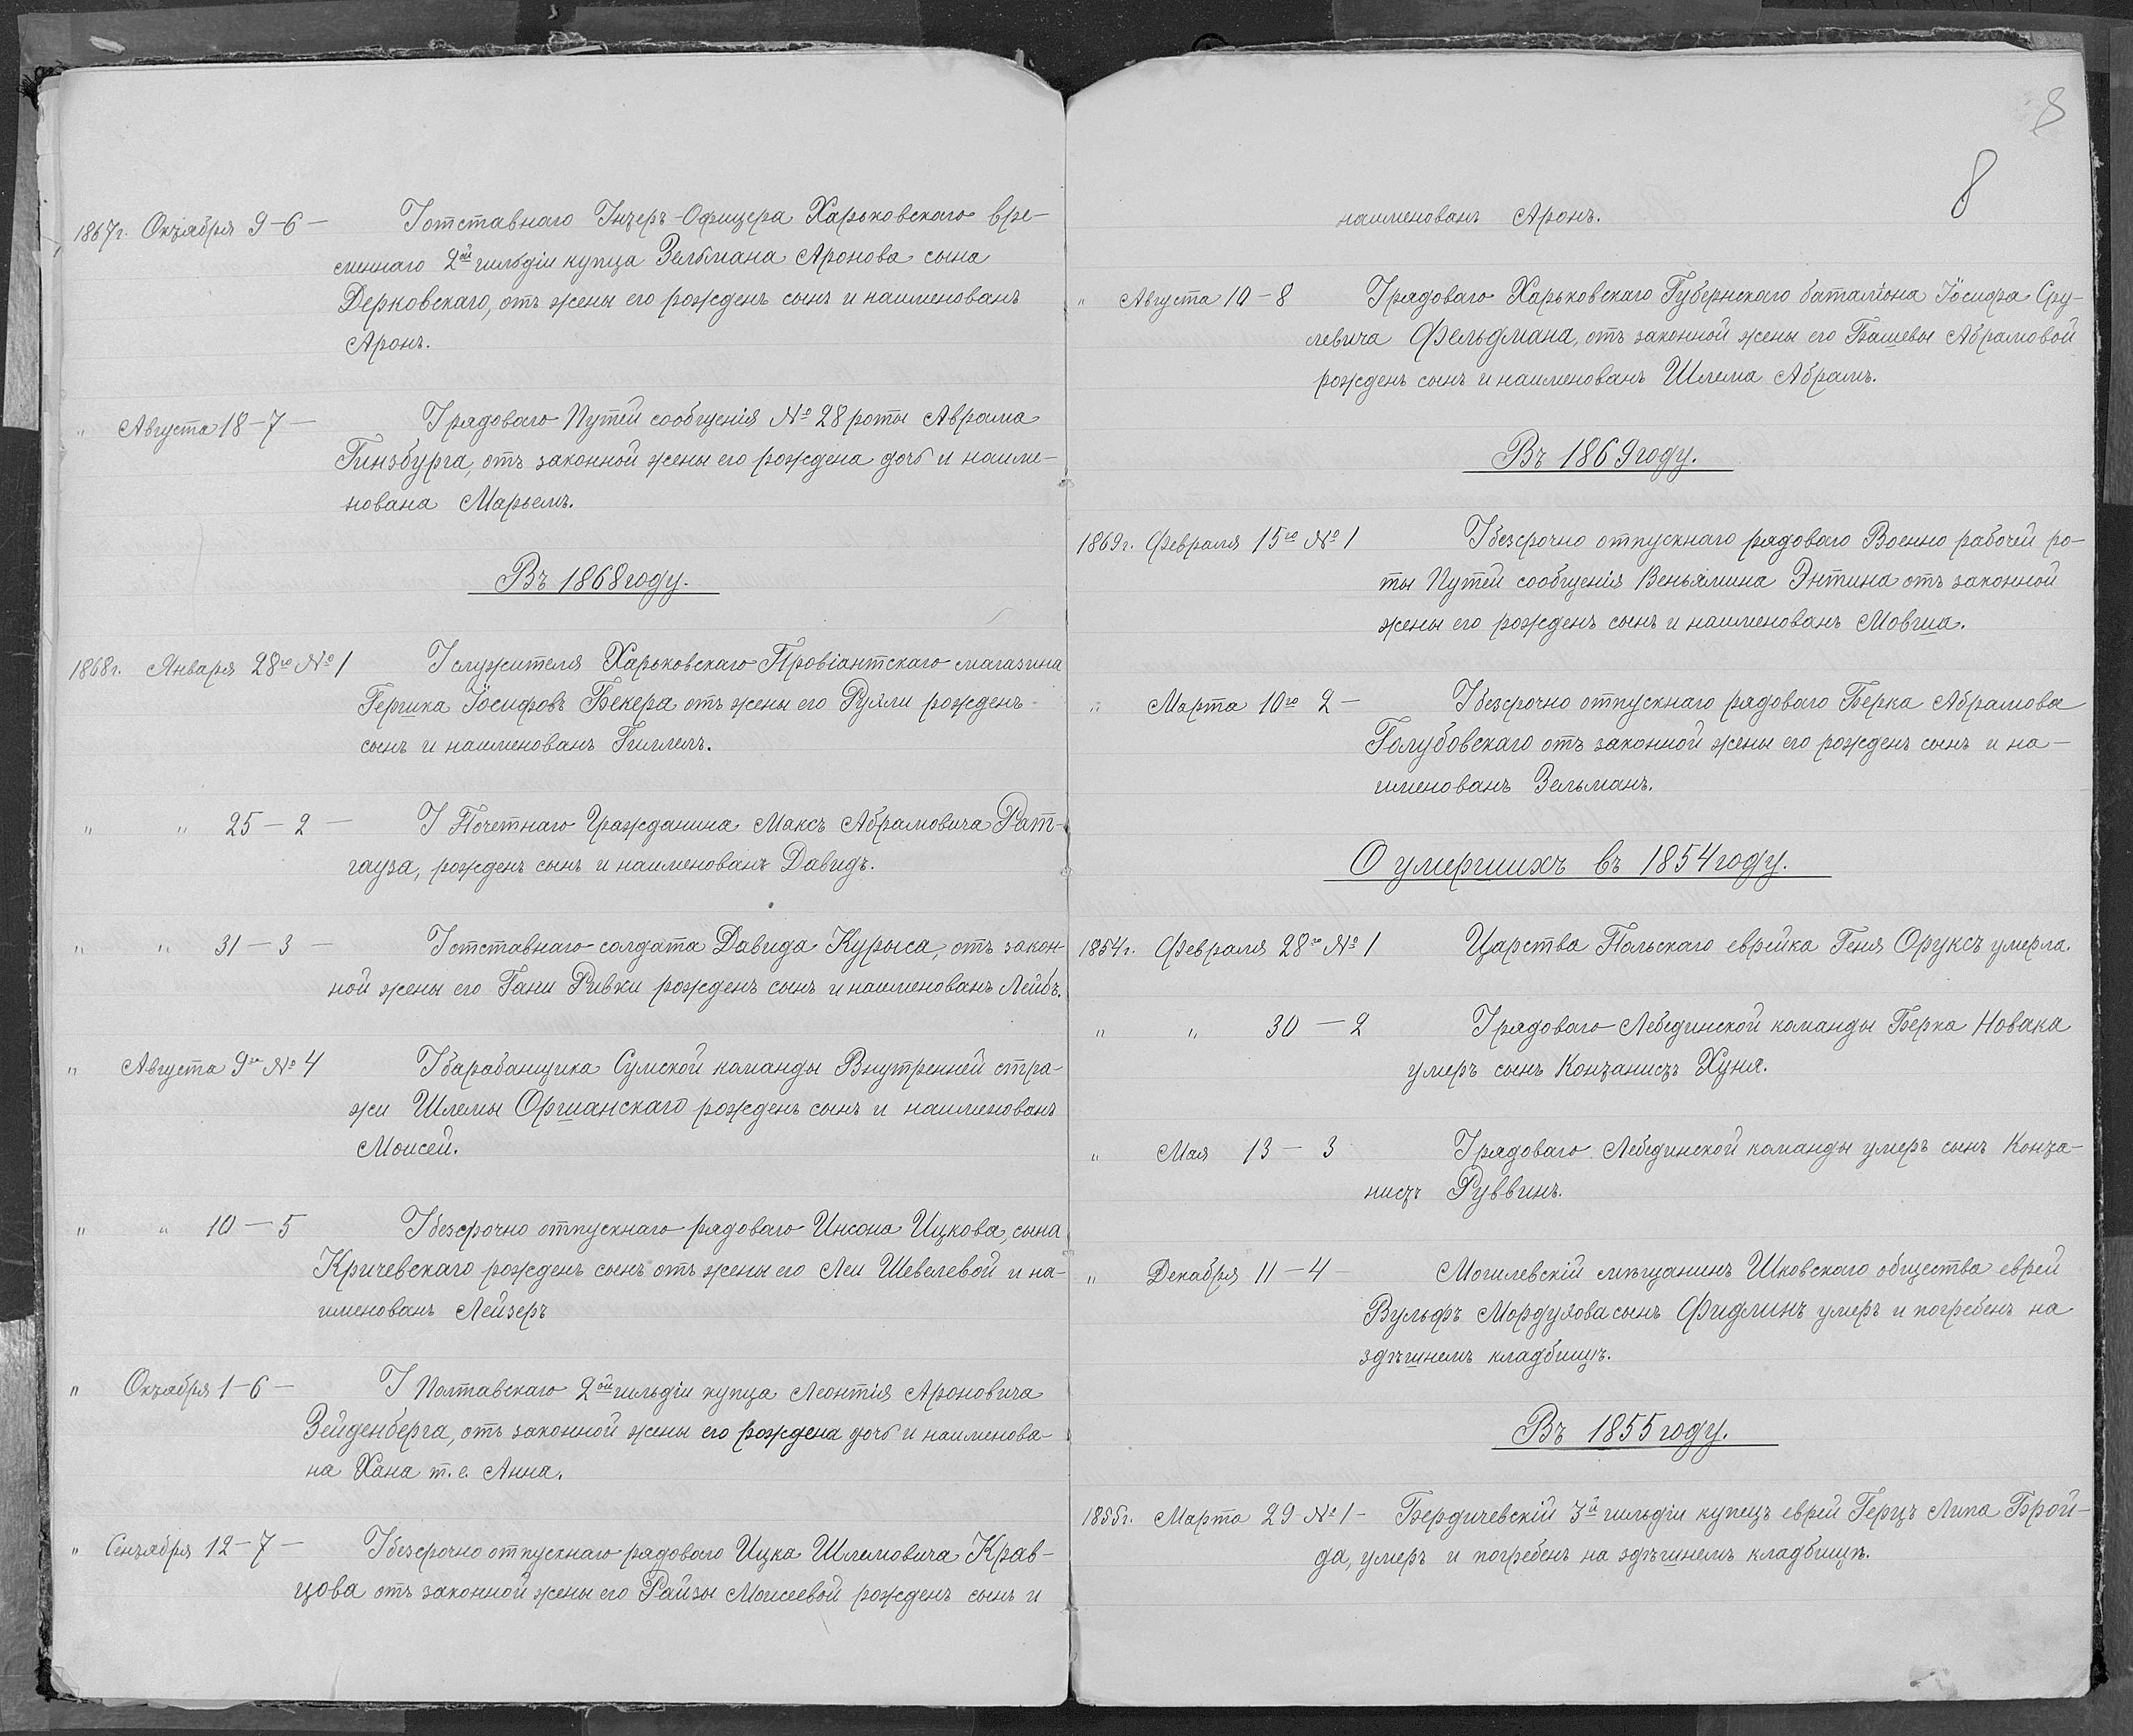 1867г. Октября 9-6- У отставнаго Унтеръ-Офицера Харьковскаго вре-
меннаго 2ой гильдіи купца Зельмана Аронова сына
Дерковскаго, отъ жены его рожденъ сынъ и наименованъ
Аронъ.
" Августа 18-7- У рядоваго Путей сообщенія № 28 роты Аврама
Гинзбурга, отъ законной жены его рождена дочь и наиме-
нована Марьемъ.
Въ 1868 году.
1868г. Января 28го № 1 У служителя Харьковскаго Провіантскаго магазина
Гершка Іосифовъ Бекера отъ жены его Рухли рожденъ
сынъ и наименованъ Гиллелъ.
" " 25-2- У Почетнаго Гражданина Максъ Абрамовича Рат-
гауза, рожденъ сынъ и наименованъ Давидъ.
" " 31-3- У отставнаго солдата Давида Курыса, отъ закон-
ной жены его Гани Ривки рожденъ сынъ и наименованъ Лейбъ.
" Августа 9го № 4 У барабанщика Сумской команды Внутренней стра-
жи Шлемы Оршанскаго рожденъ сынъ и наименованъ
Моисей.
" " 10-5 У безсрочно отпускнаго рядоваго Инсона Ицкова, сына
Кричевскаго рожденъ сынъ отъ жены его Леи Шевелевой и на-
именованъ Лейзеръ
" Октября 1-6- У Полтавскаго 2ой гильдіи купца Леонтія Ароновича
Зейденберга, отъ законной жены его рождена дочь и наименова-
на Хана т.е. Анна.
" Сентября 12-7- У безсрочно отпускнаго рядоваго Ицка Шлемовича Крав-
цова отъ законной жены его Райзы Моисеевой рожденъ сынъ и
8
8
наименованъ Аронъ.
" Августа 10-8 У рядоваго Харьковскаго Губернскаго баталіона Іосифа Сру-
левича Фельдмана, отъ законной жены его Башевы Абрамовой
рожденъ сынъ и наименованъ Шлема Абрамъ.
Въ 1869 году.
1869г. Февраля 15го № 1 У безсрочно отпускнаго рядоваго Военно рабочей ро-
ты Путей сообщенія Веньямина Энтина отъ законной
жены его рожденъ сынъ и наименованъ Мовша.
" Марта 10го 2- У безсрочно отпускнаго рядоваго Берка Абрамова
Голубовскаго отъ законной жены его рожденъ сынъ и на-
именованъ Зельманъ.
О умершихъ въ 1854 году.
1854г. Февраля 28го № 1 Царства Польскаго еврейка Геня Оруксъ умерла.
" " 30-2 У рядоваго Лебединской команды Берка Новака
умеръ сынъ Контанистъ Хуня.
" Мая 13-3 У рядоваго Лебединской команды умеръ сынъ Конта-
нистъ Руввинъ.
" Декабря 11-4- Могилевскій мѣщанинъ Шковскаго общества еврей
Вульфъ Мордухова сынъ Фидлинъ умеръ и погребенъ на
здѣшнемъ кладбищѣ.
Въ 1855 году.
1855г. Марта 29 № 1- Бердичевскій 3й гильдіи купецъ еврей Герцъ Липа Брой-
да, умеръ и погребенъ на здѣшнемъ кладбищѣ.